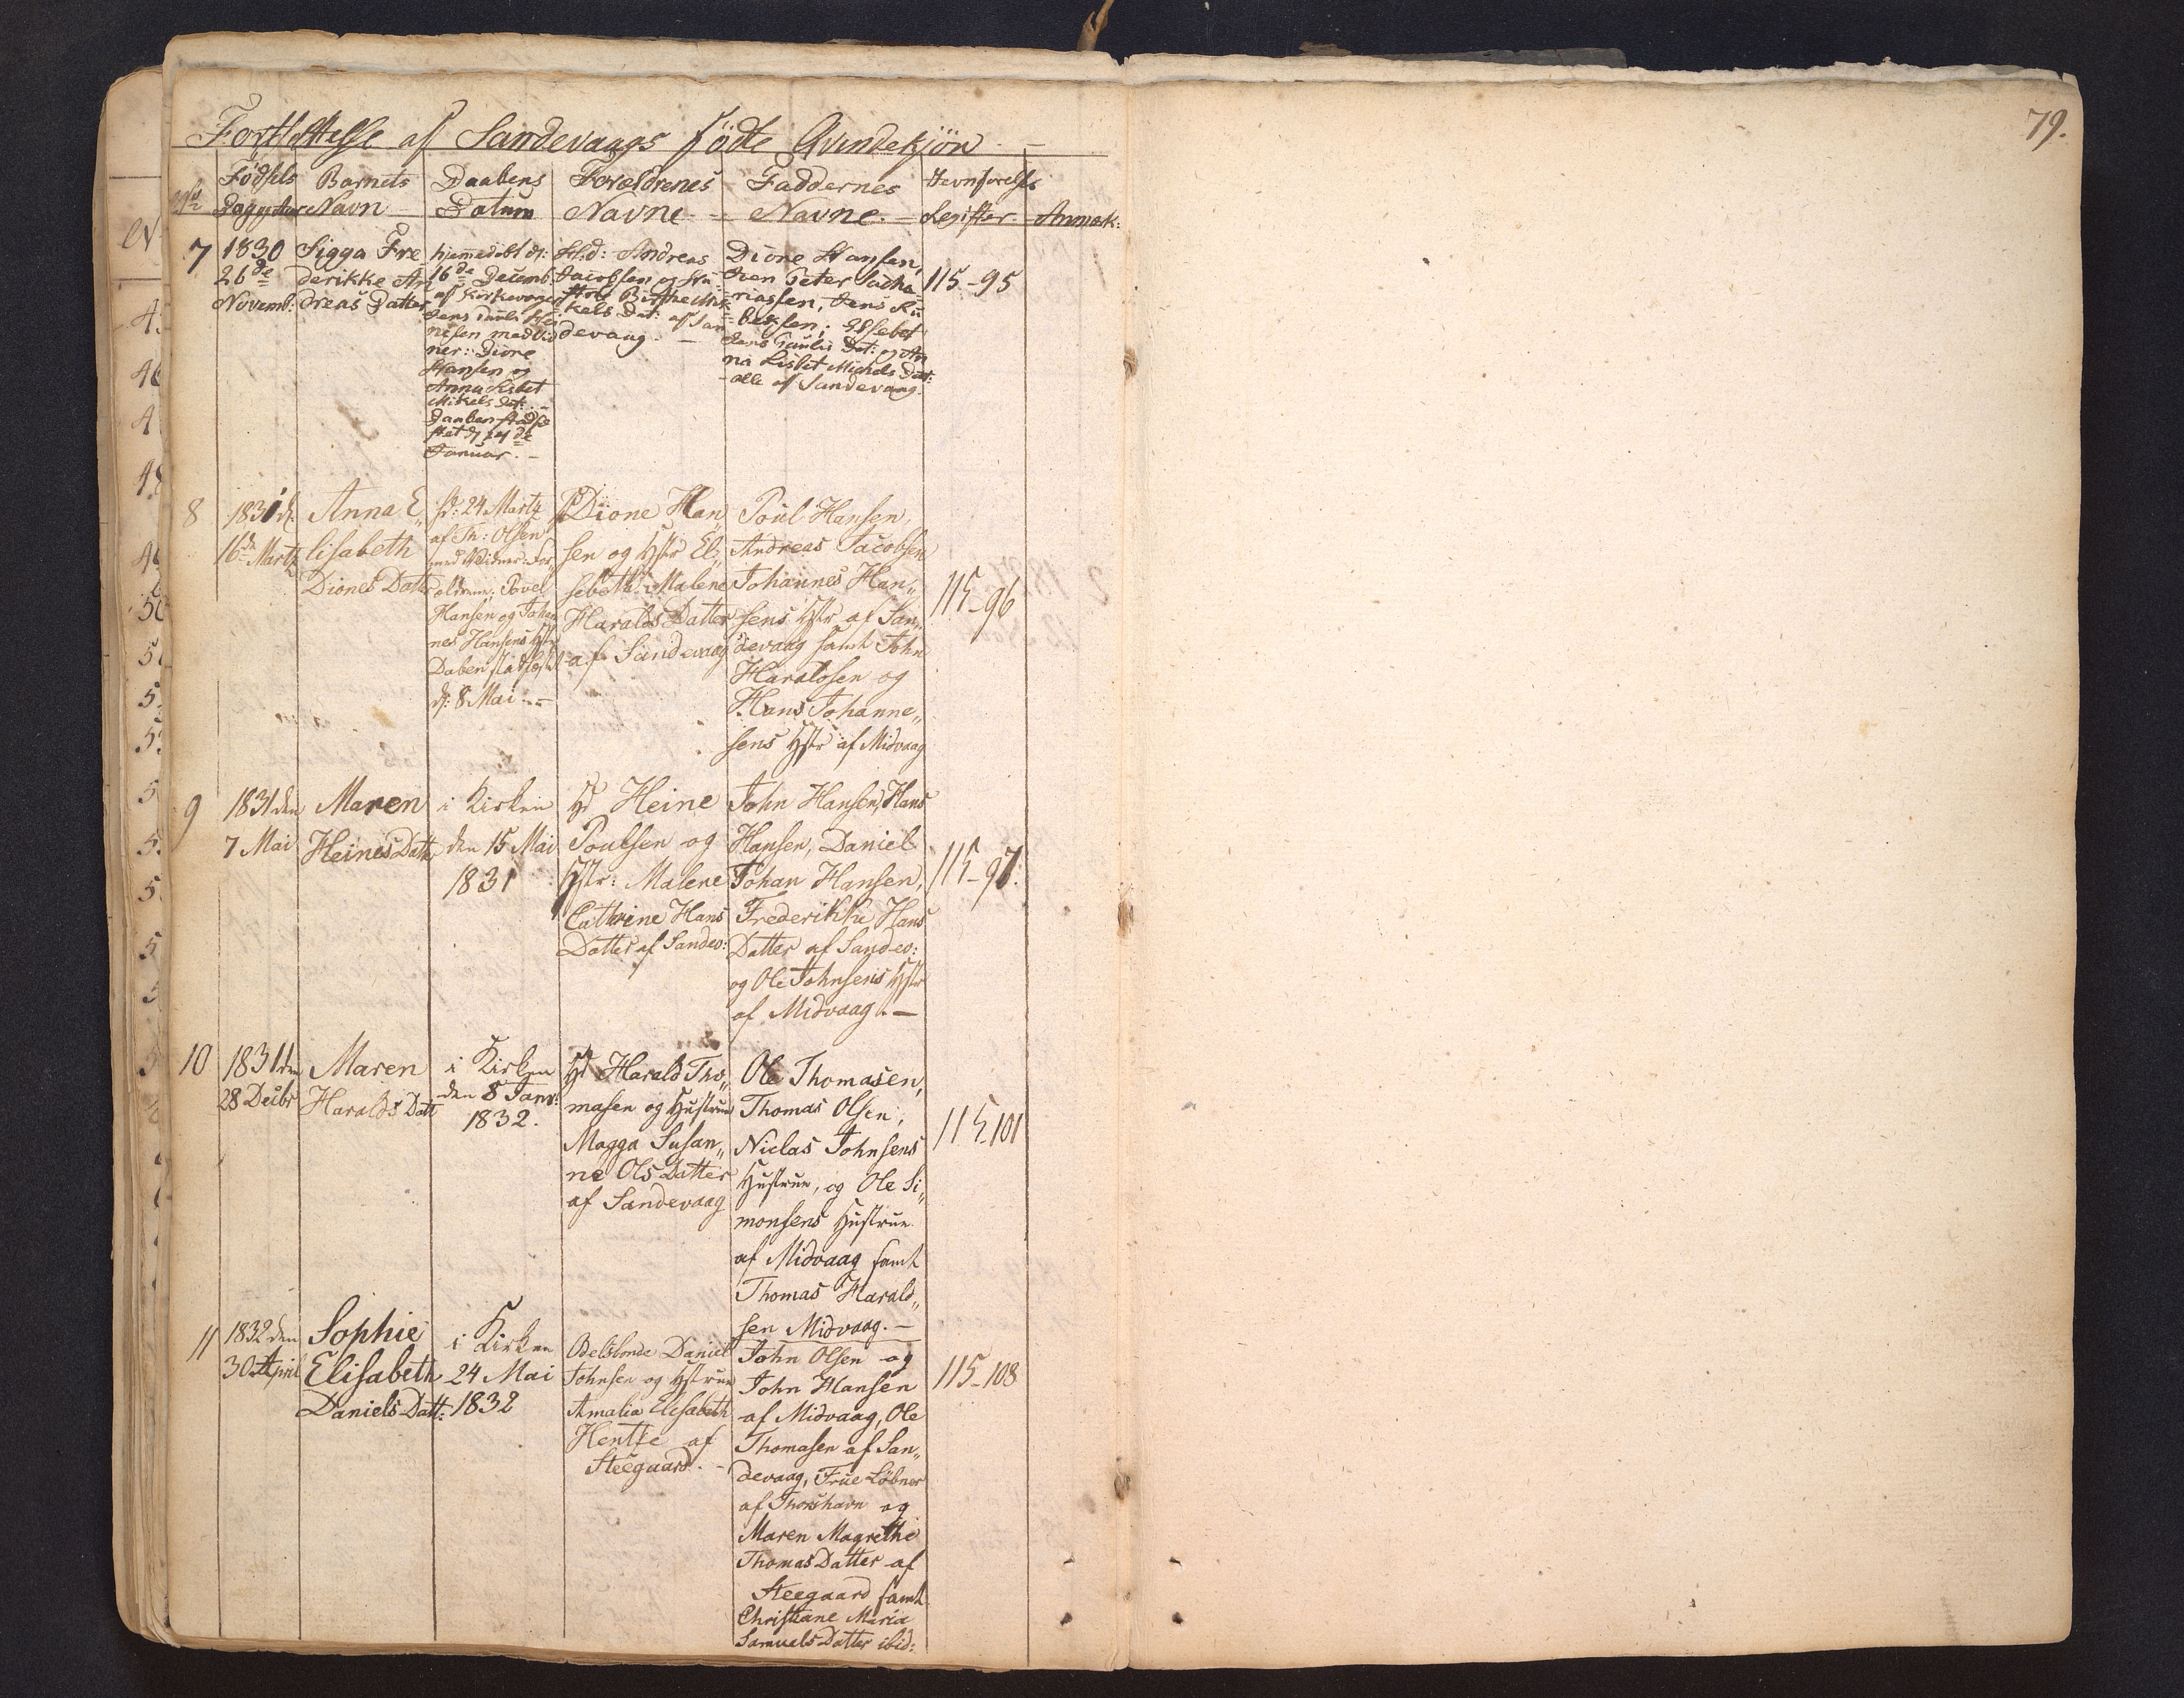 79.
Fortsættelse af Sandevaags fødte Qvindekjøn
No
Fødsels
Dag og Aar
Barnets
Navn
Daabens
Datum
Forældrenes
Navne
Faddernes
Navne
Jevnførelses
Register
Anmærk:
7
1830
26de
Novemb:
Sigga Fre
derikke An
dreas Datter
hjemmedøbt d:
16de Decemb:
af Kirkeværge
Jens
nesen med Vid
ner: Dione
Hansen og
Anna Lisbet
Mikels Dat:
Daaben stadfæ
stet d: 24de
Januar.
H.d: Andreas
Jacobsen og Hu
stroe
kels Dat: af San
devaag.
Dione Hansen,
Peter Sacha
riassen, Jens
beksen, Elsebet
Jens Paulis Dat: og An
na Lisbet Michels Dat:
alle af Sandevaag.
115-95
8
1831 d.
16de Martz
Anna E,,
lisabeth
Diones Datter
d: 24 Martz
af Th: Olsen
med Vidner For,,
ældrene, Povel
Hansen og Johan
nes Hansens Hstr
Daben stadfæstet
d: 8 Mai
Dione Han
sen og Hstr El,,
sebeth Malene
Haralds Datter
af Sandevaag
Poul Hansen,
Andreas Jacobsen
Johannes Han,,
sens Hstr af San,,
devaag samt John
Haraldsen og
Hans Johanne,,
sens Hstr af Midvaag
115-96
9
1831 den
7 Mai
Maren
Heines Datter
i Kirken
den 15 Mai
1831
Hd Heine
Poulsen og
Hstr: Malene
Cathrine Hans
Datter af Sandev:
John Hansen, Hans
Hansen, Daniel
Johan Hansen,
Frederikke Hans
Datter af Sandev:
og Ole Johnsens Hstr
af Midvaag.
115-97.
10
1831 den
28 Decbr
Maren
Haralds Datt
i Kirken
den 8 Janv:
1832.
Hd Harald Tho,,
masen og Hustrue
Magga Susan,,
ne Ols Datter
af Sandevaag
Ole Thomasen,
Thomas Olsen,
Niclas Johnsens
Hustrue, og Ole Si,,
monsens Hustrue
af Midvaag samt
Thomas Harald,,
sen Midvaag.
115-101
11
1832 den
30 April
Sophie
Elisabeth
Daniels Datt:
i Kirken
24 Mai
1832
Odelsbonde Daniel
Johnsen og Hstrue
Amalia Elisabeth
Hentze af
Steegaard.
John Olsen og
John Hansen
af Midvaag, Ole
Thomasen af San,,
devaag, Frue Löbner
af Thorshavn og
Maren Magrethe
Thomas Datter af
Steegaard samt
Christiane Maria
Samuels Datter ibid:
115-108